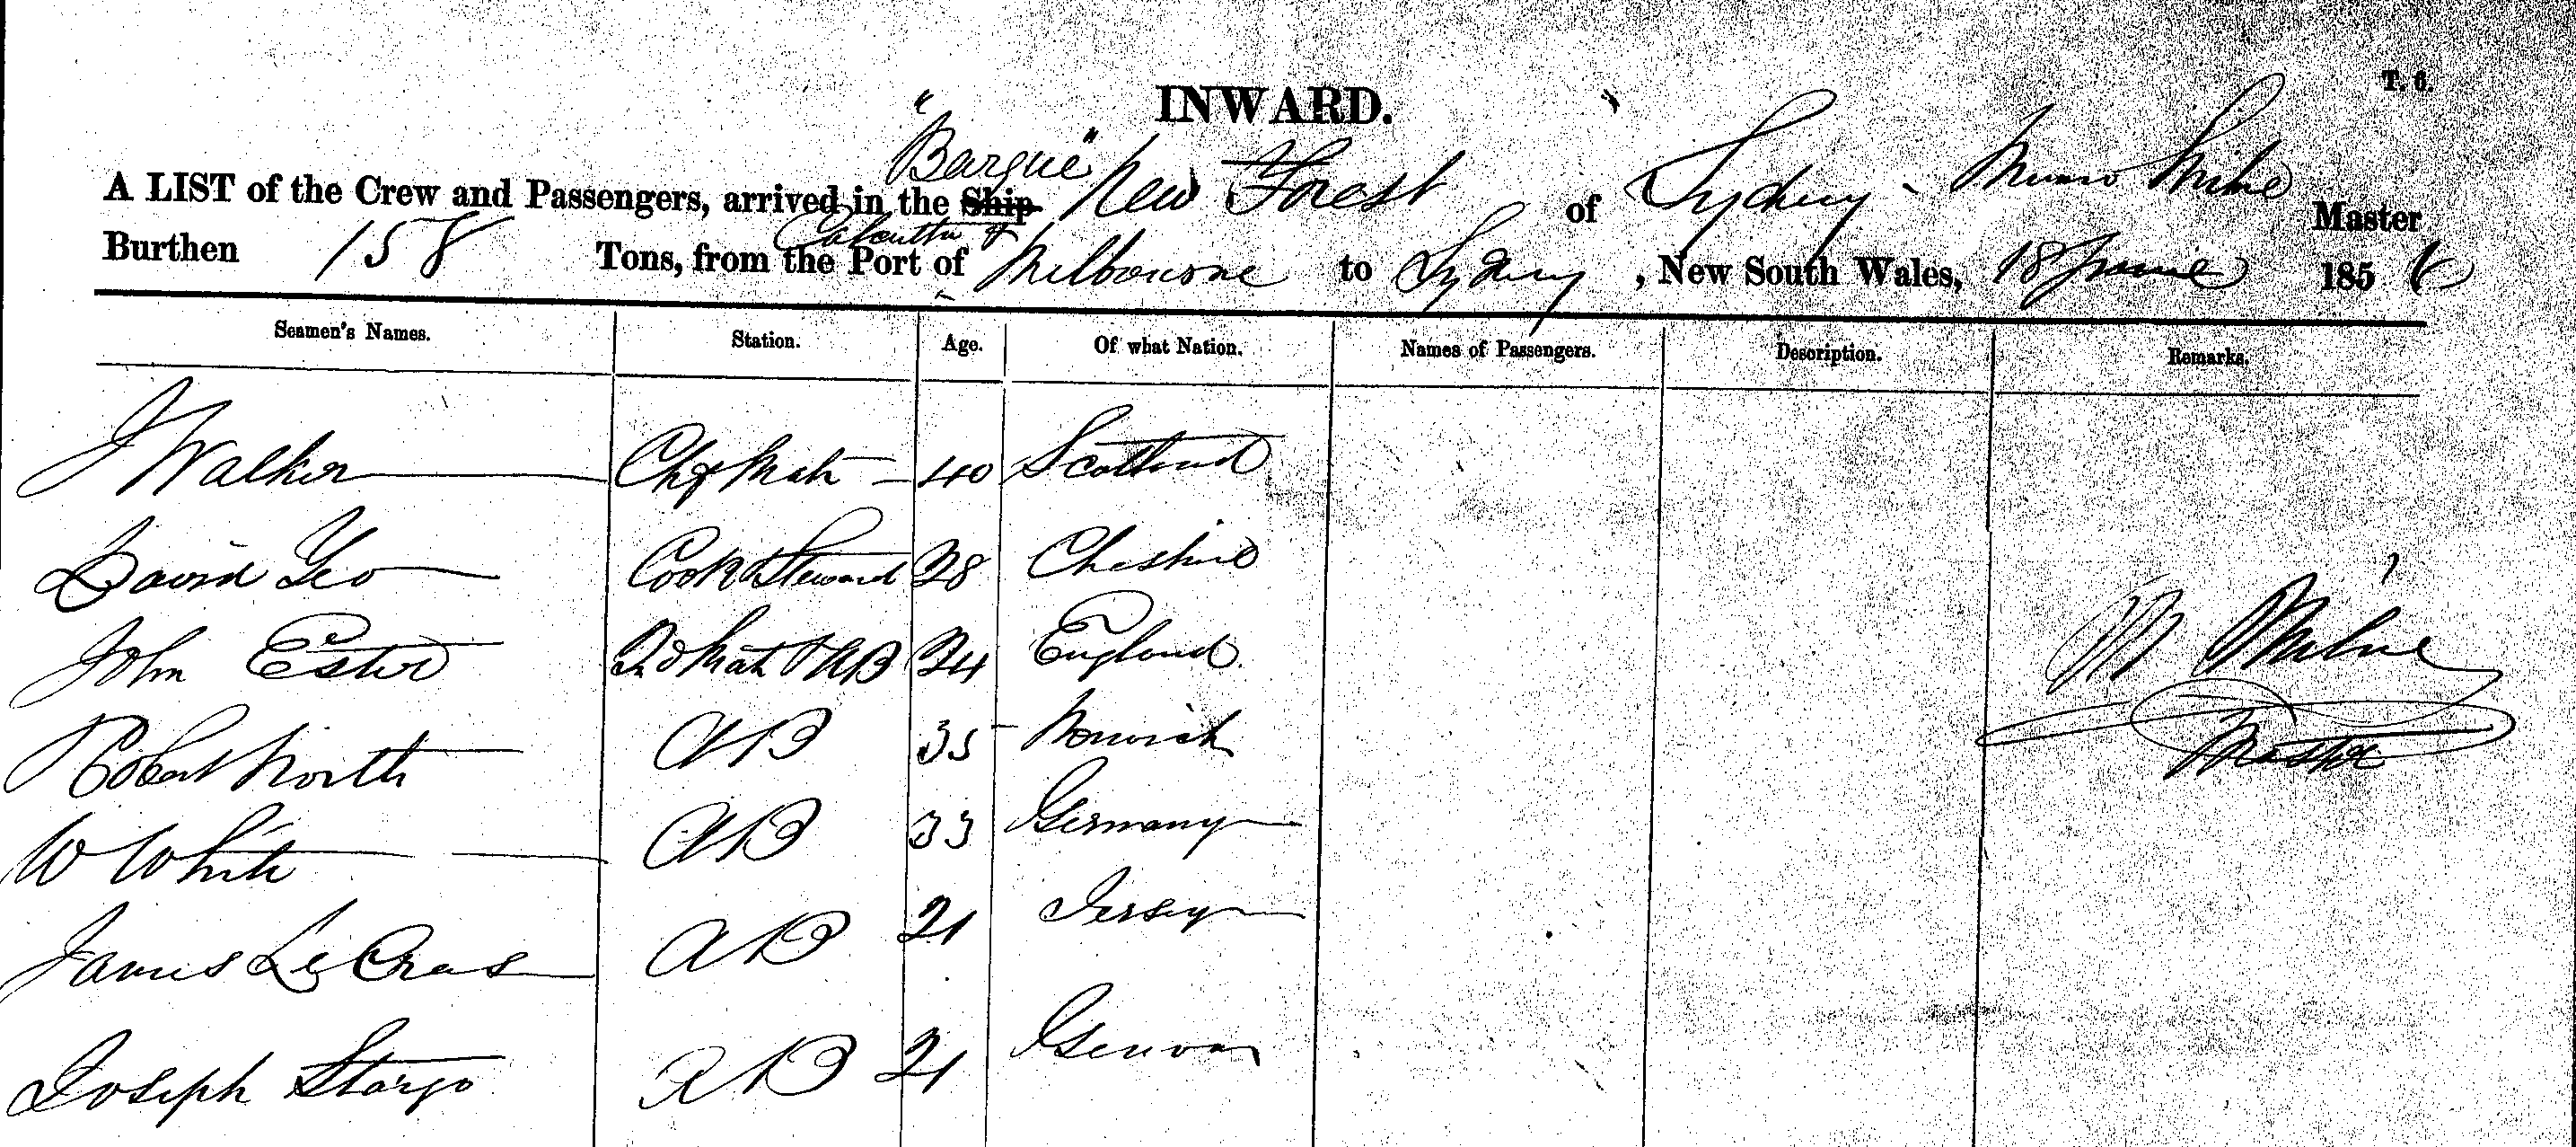 T. 6.
INWARD.
A LIST of the Crew and Passengers, arrived in the Ship "Barque" New Forest of Sydney - Munro Milne Master
Burthen 158 Tons, from the Port of Calcutta & Melbourne to Sydney, New South Wales, 18 June 1856
Seamen's Names. Station. Age. Of what Nation. Names of Passengers. Description. Remarks.
J Walker Chf Mate 40 Scotland
David Geo Cook & Steward 28 Cheshire
John Ester 2d Mate & AB 24 England
M Milne
Robert North AB 35 Norwich
Master
W White AB 33 Germany
James Le Cras AB 21 Jersey
Joseph AB 21 Genoa